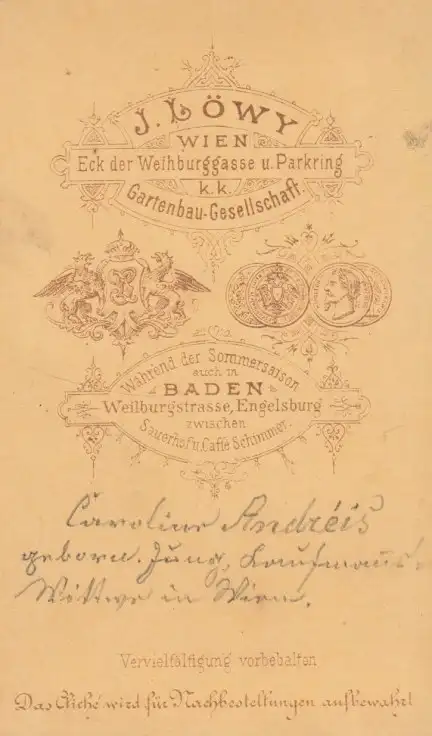 J. LÖWY
WIEN
Eck der Weihburggasse u. Parkring
k. k.
Gartenbau-Gesellschaft.
Während der Sommersaison
auch in
BADEN
Weilburgstrasse, Engelsburg
zwischen
Sauerhof u. Caffé Schimmer.
Caroline Andréis
geborn. Jung, Kaufmanns-
Wittwe in Wien.
Vervielfältigung vorbehalten
Das Cliché wird für Nachbestellungen aufbewahrt